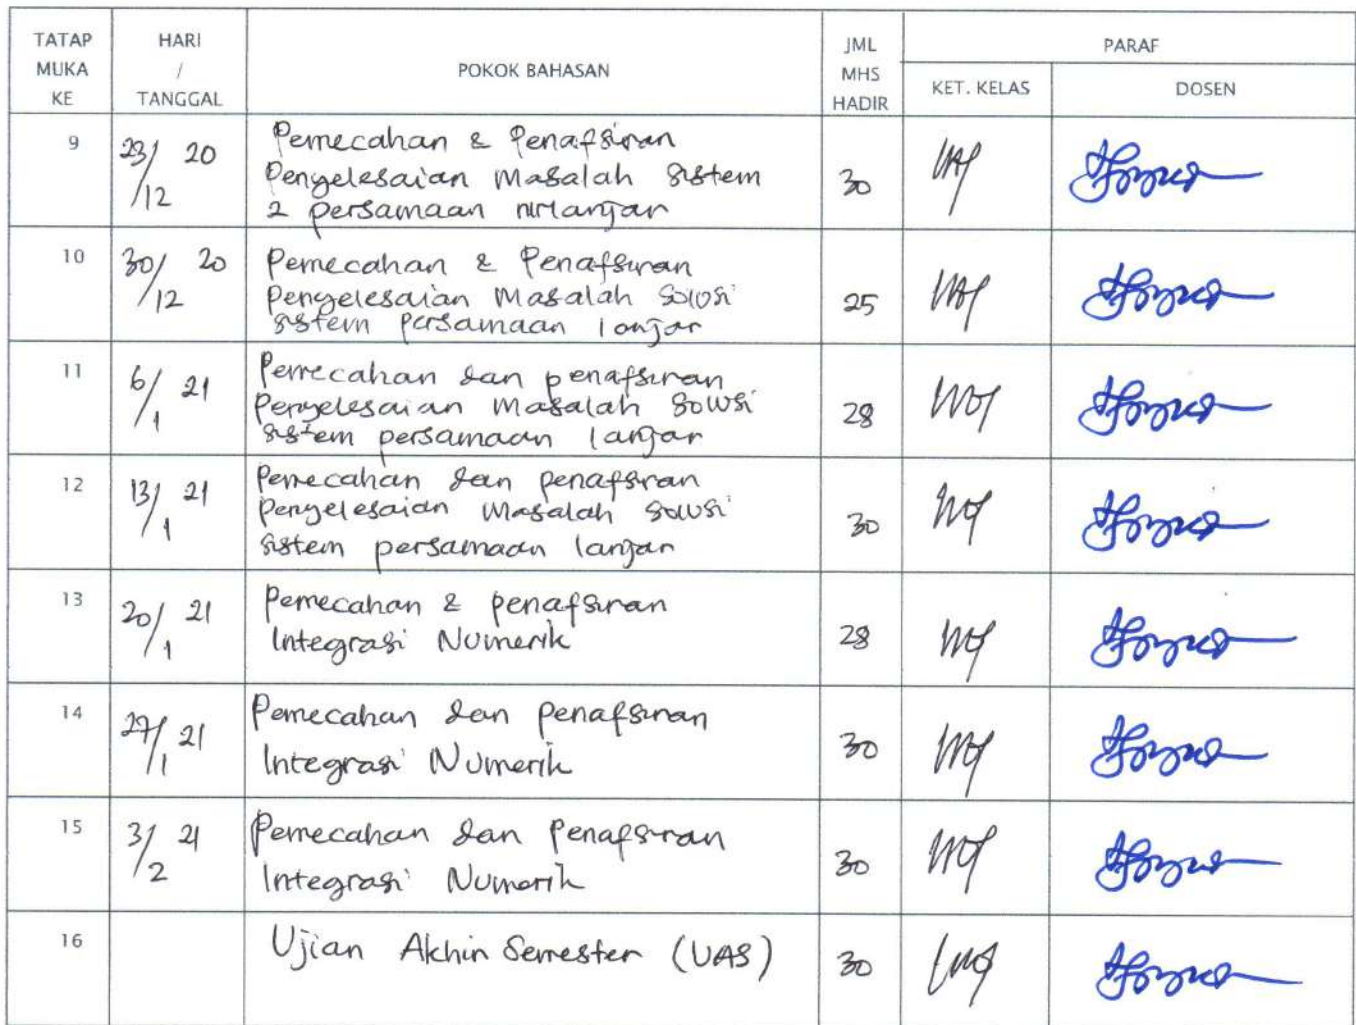 TATAP MUKA KE
HARI / TANGGAL
POKOK BAHASAN
JML MHS HADIR
PARAF
KET. KELAS
DOSEN
9
23/12 20
Pemecahan & Penafsiran
Penyelesaian Masalah Sistem
2 persamaan nirlanjar
30
10
30/12 20
Pemecahan & Penafsiran
Penyelesaian Masalah Solusi
sistem persamaan lanjar
25
11
6/1 21
Pemecahan dan penafsiran
Penyelesaian Masalah Solusi
sistem persamaan lanjar
28
12
13/1 21
Pemecahan dan penafsiran
Penyelesaian Masalah Solusi
sistem persamaan lanjar
30
13
20/1 21
Pemecahan & penafsiran
Integrasi Numerik
28
14
27/1 21
Pemecahan dan penafsiran
Integrasi Numerik
30
15
3/2 21
Pemecahan dan Penafsiran
Integrasi Numerik
30
16
Ujian Akhir Semester (UAS)
30